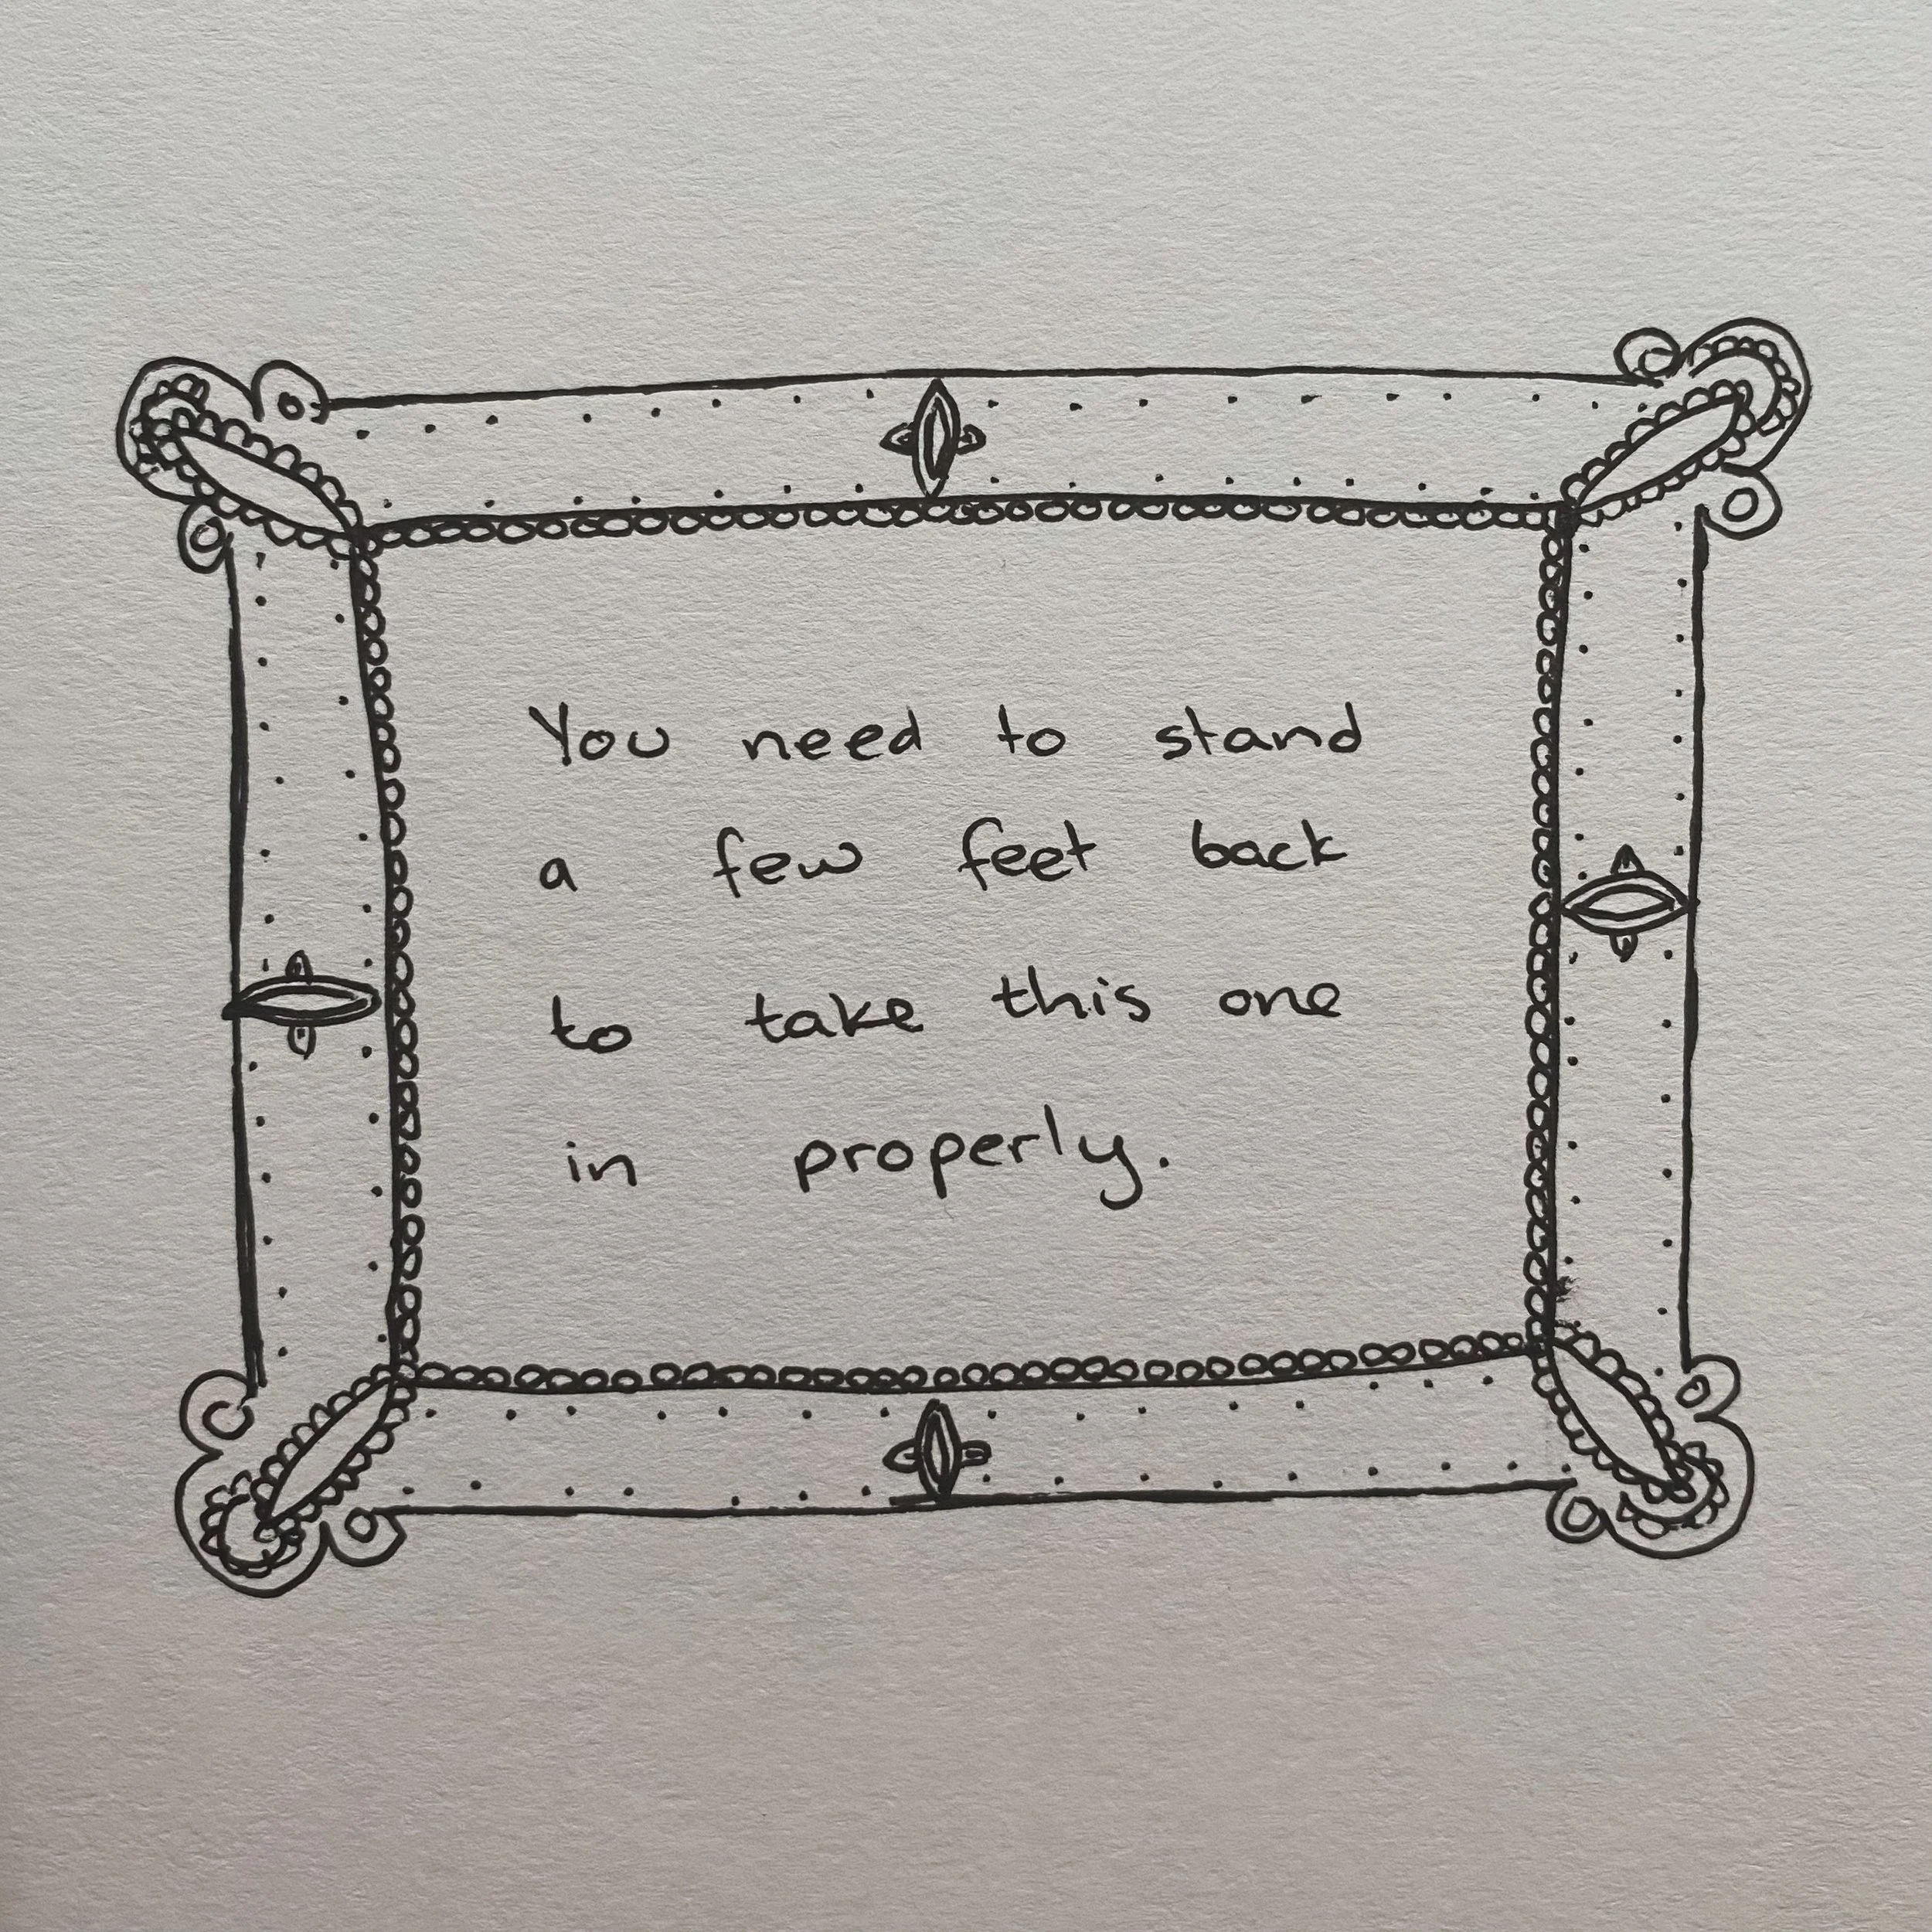 You need to stand
a few feet back
to take this one
in properly.